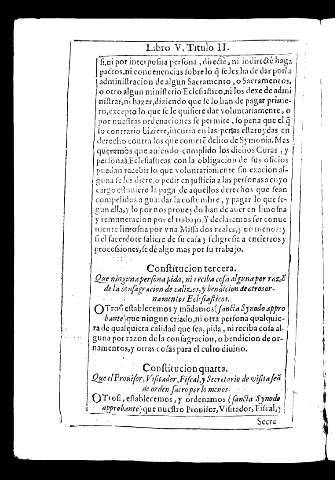 Libro V. Titulo II.
si, ni por interposita persona, directè, ni indirectè haga
pactos, ni conuenciones sobre lo q̃ se les ha de dar por la
administracion de algun Sacramento, o Sacramentos,
o otro algun ministerio Ecclesiastico, ni los dexe de admi
nistrar, ni hazer, diziendo que se lo han de pagar prime-
ro, excepto lo que se le quisiere dar voluntariamente, o
por nuestras ordenaciones se permite, so pena que el q̃
lo contrario hiziere, incurra en las penas estatuydas en
derecho contra los que cometẽ delicto de Symonia. Mas
queremos que auiendo cumplido los dichos Curas, y
personas Ecclesiasticas con la obligacion de sus oficios
puedan recebir lo que voluntariamente sin exacion al-
guna se les diere, o pedir en justicia a las personas a cuyo
cargo estuuiere la paga, de aquellos derechos que sean
compelidos a guardar la costumbre, y pagar lo que se-
gun ella, y lo por nos proueydo han de auer en limosna
y remuneracion por el trabajo. Y declaramos ser conue
niente limosna por vna Missa dos reales, y no menos: y
si el sacerdote saliere de su casa y feligresia a entierros y
processiones, se dè algo mas por su trabajo.
Constitucion tercera.
Que ninguna persona pida, ni reciba cosa alguna por razõ
de la consagracion de calizes, y bendicion de otros or-
namentos Ecclesiasticos.
OTrosi establecemos y mãdamos (sancta Synodo appro
bante) que ningun criado, ni otra persona qualquie-
ra de qualquiera calidad que sea, pida, ni reciba cosa al-
guna por razon de la consagracion, o bendicion de or-
namentos, y otras cosas para el culto diuino.
Constitucion quarta.
Que el Prouisor, Visitador, Fiscal, y Secretario de visita seã
de orden sacro por lo menos.
OTrosi, establecemos, y ordenamos (sancta Synodo
approbante) que nuestro Prouisor, Visitador, Fiscal, y
Secre